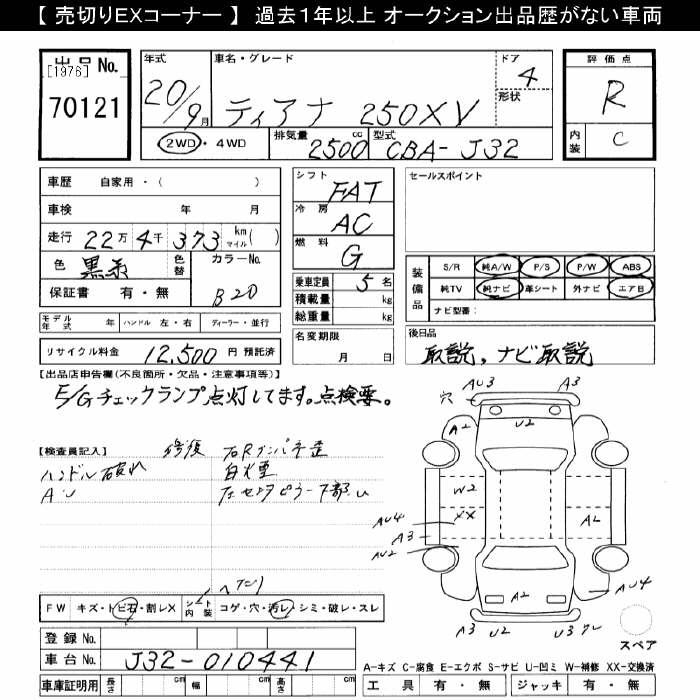 【 売切りEXコーナー 】 過去1年以上 オークション出品歴がない車両
出品 No.
[1976]
70121
年式 車名・グレード ドア 4
20/9月 ティアナ 250XV 形状
2WD ・ 4WD 排気量 2500 cc 型式 CBA-J32
評価点
R
内装 C
車歴 自家用・( )
車検 年 月
走行 22万 4千 373 km マイル( )
色 黒系 色替 カラーNo. B20
保証書 有・無
モデル年式 年 ハンドル 左・右 ディーラー・並行
リサイクル料金 12,500 円 預託済
シフト FAT
冷房 AC
燃料 G
乗車定員 5 名
積載量 kg
総重量 kg
名変期限
月 日
セールスポイント
装備品 S/R 純A/W P/S P/W ABS
純TV 純ナビ 革シート 外ナビ エアB
ナビ型番:
後日品
取説, ナビ取説
【出品店申告欄(不良箇所・欠品・注意事項等)】
E/Gチェックランプ点灯してます。点検要。
【検査員記入】 修復 右Rインパネ歪
ハンドル破れ 白煙
AU 左センタピラー下部U
FW キズ・トビ石・割レX シート内装 コゲ・穴・汚レ・シミ・破レ・スレ
登録 No.
車台 No. J32-010441
車庫証明用 長さ cm 幅 cm 高さ cm
AU3 A3
穴
A2 U2
W2
XX
AU4
A3
AU2
A2
AU4
A3 U2 U3
スペア
A-キズ C-腐食 E-エクボ S-サビ U-凹ミ W-補修 XX-交換済
工具 有・無 ジャッキ 有・無